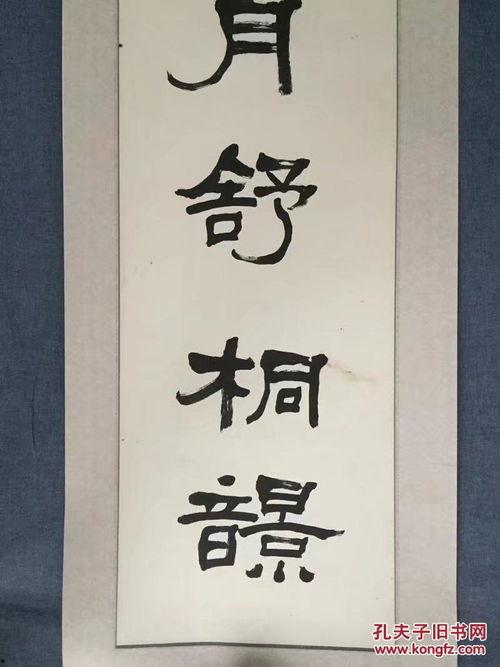 月
舒
桐
孔夫子旧书网
www.kongfz.com